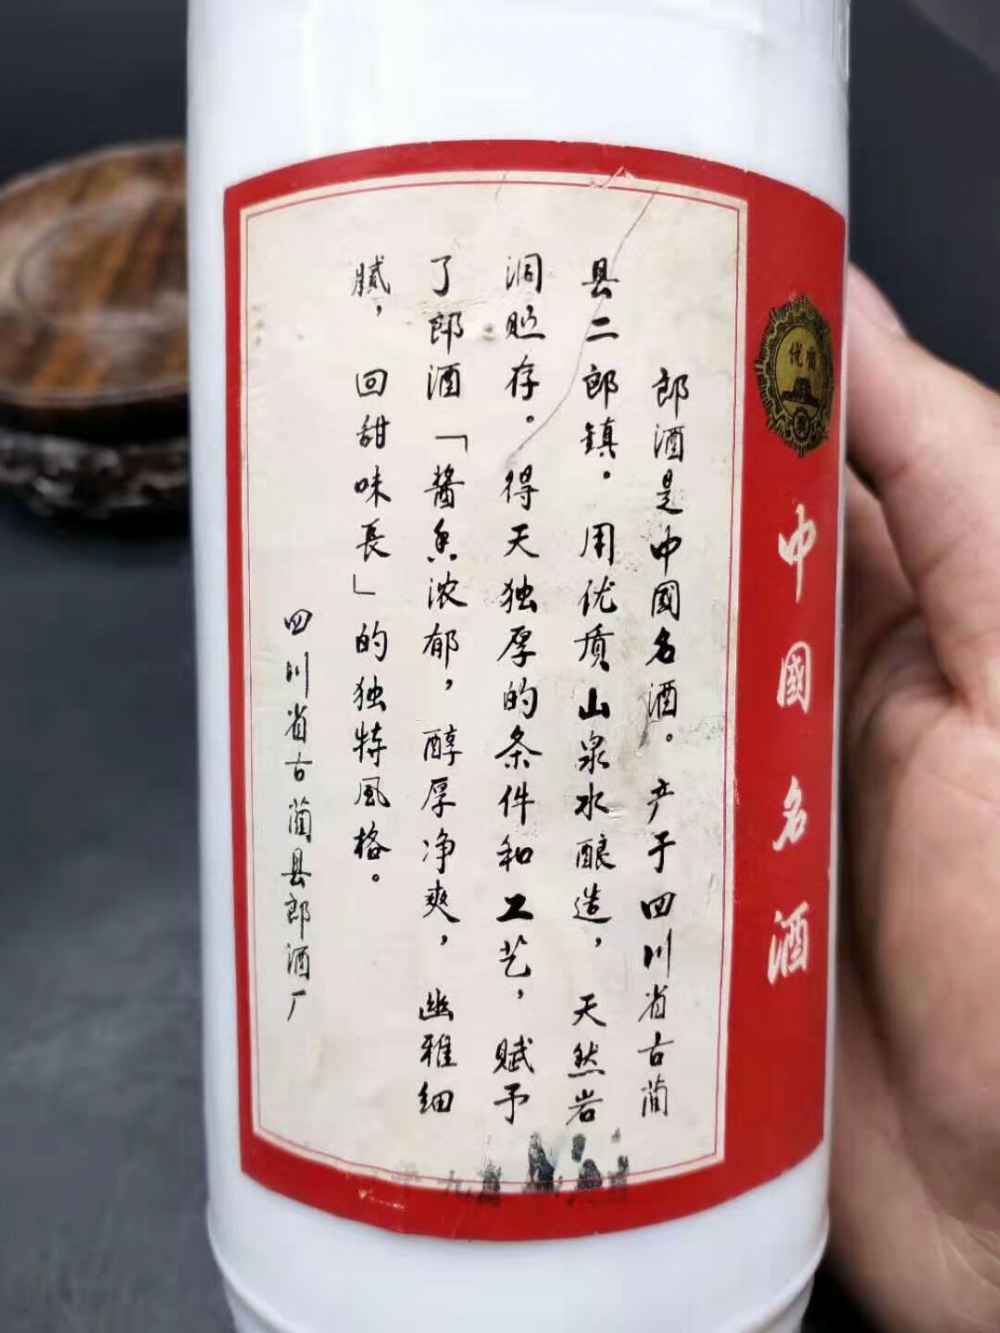 中國名酒
郎酒是中國名酒。产于四川省古蔺
县二郎镇。用优质山泉水酿造，天然岩
洞贮存。得天独厚的条件和工艺，赋予
了郎酒「醬香浓郁，醇厚净爽，幽雅细
腻，回甜味長」的独特風格。
四川省古蔺县郎酒厂